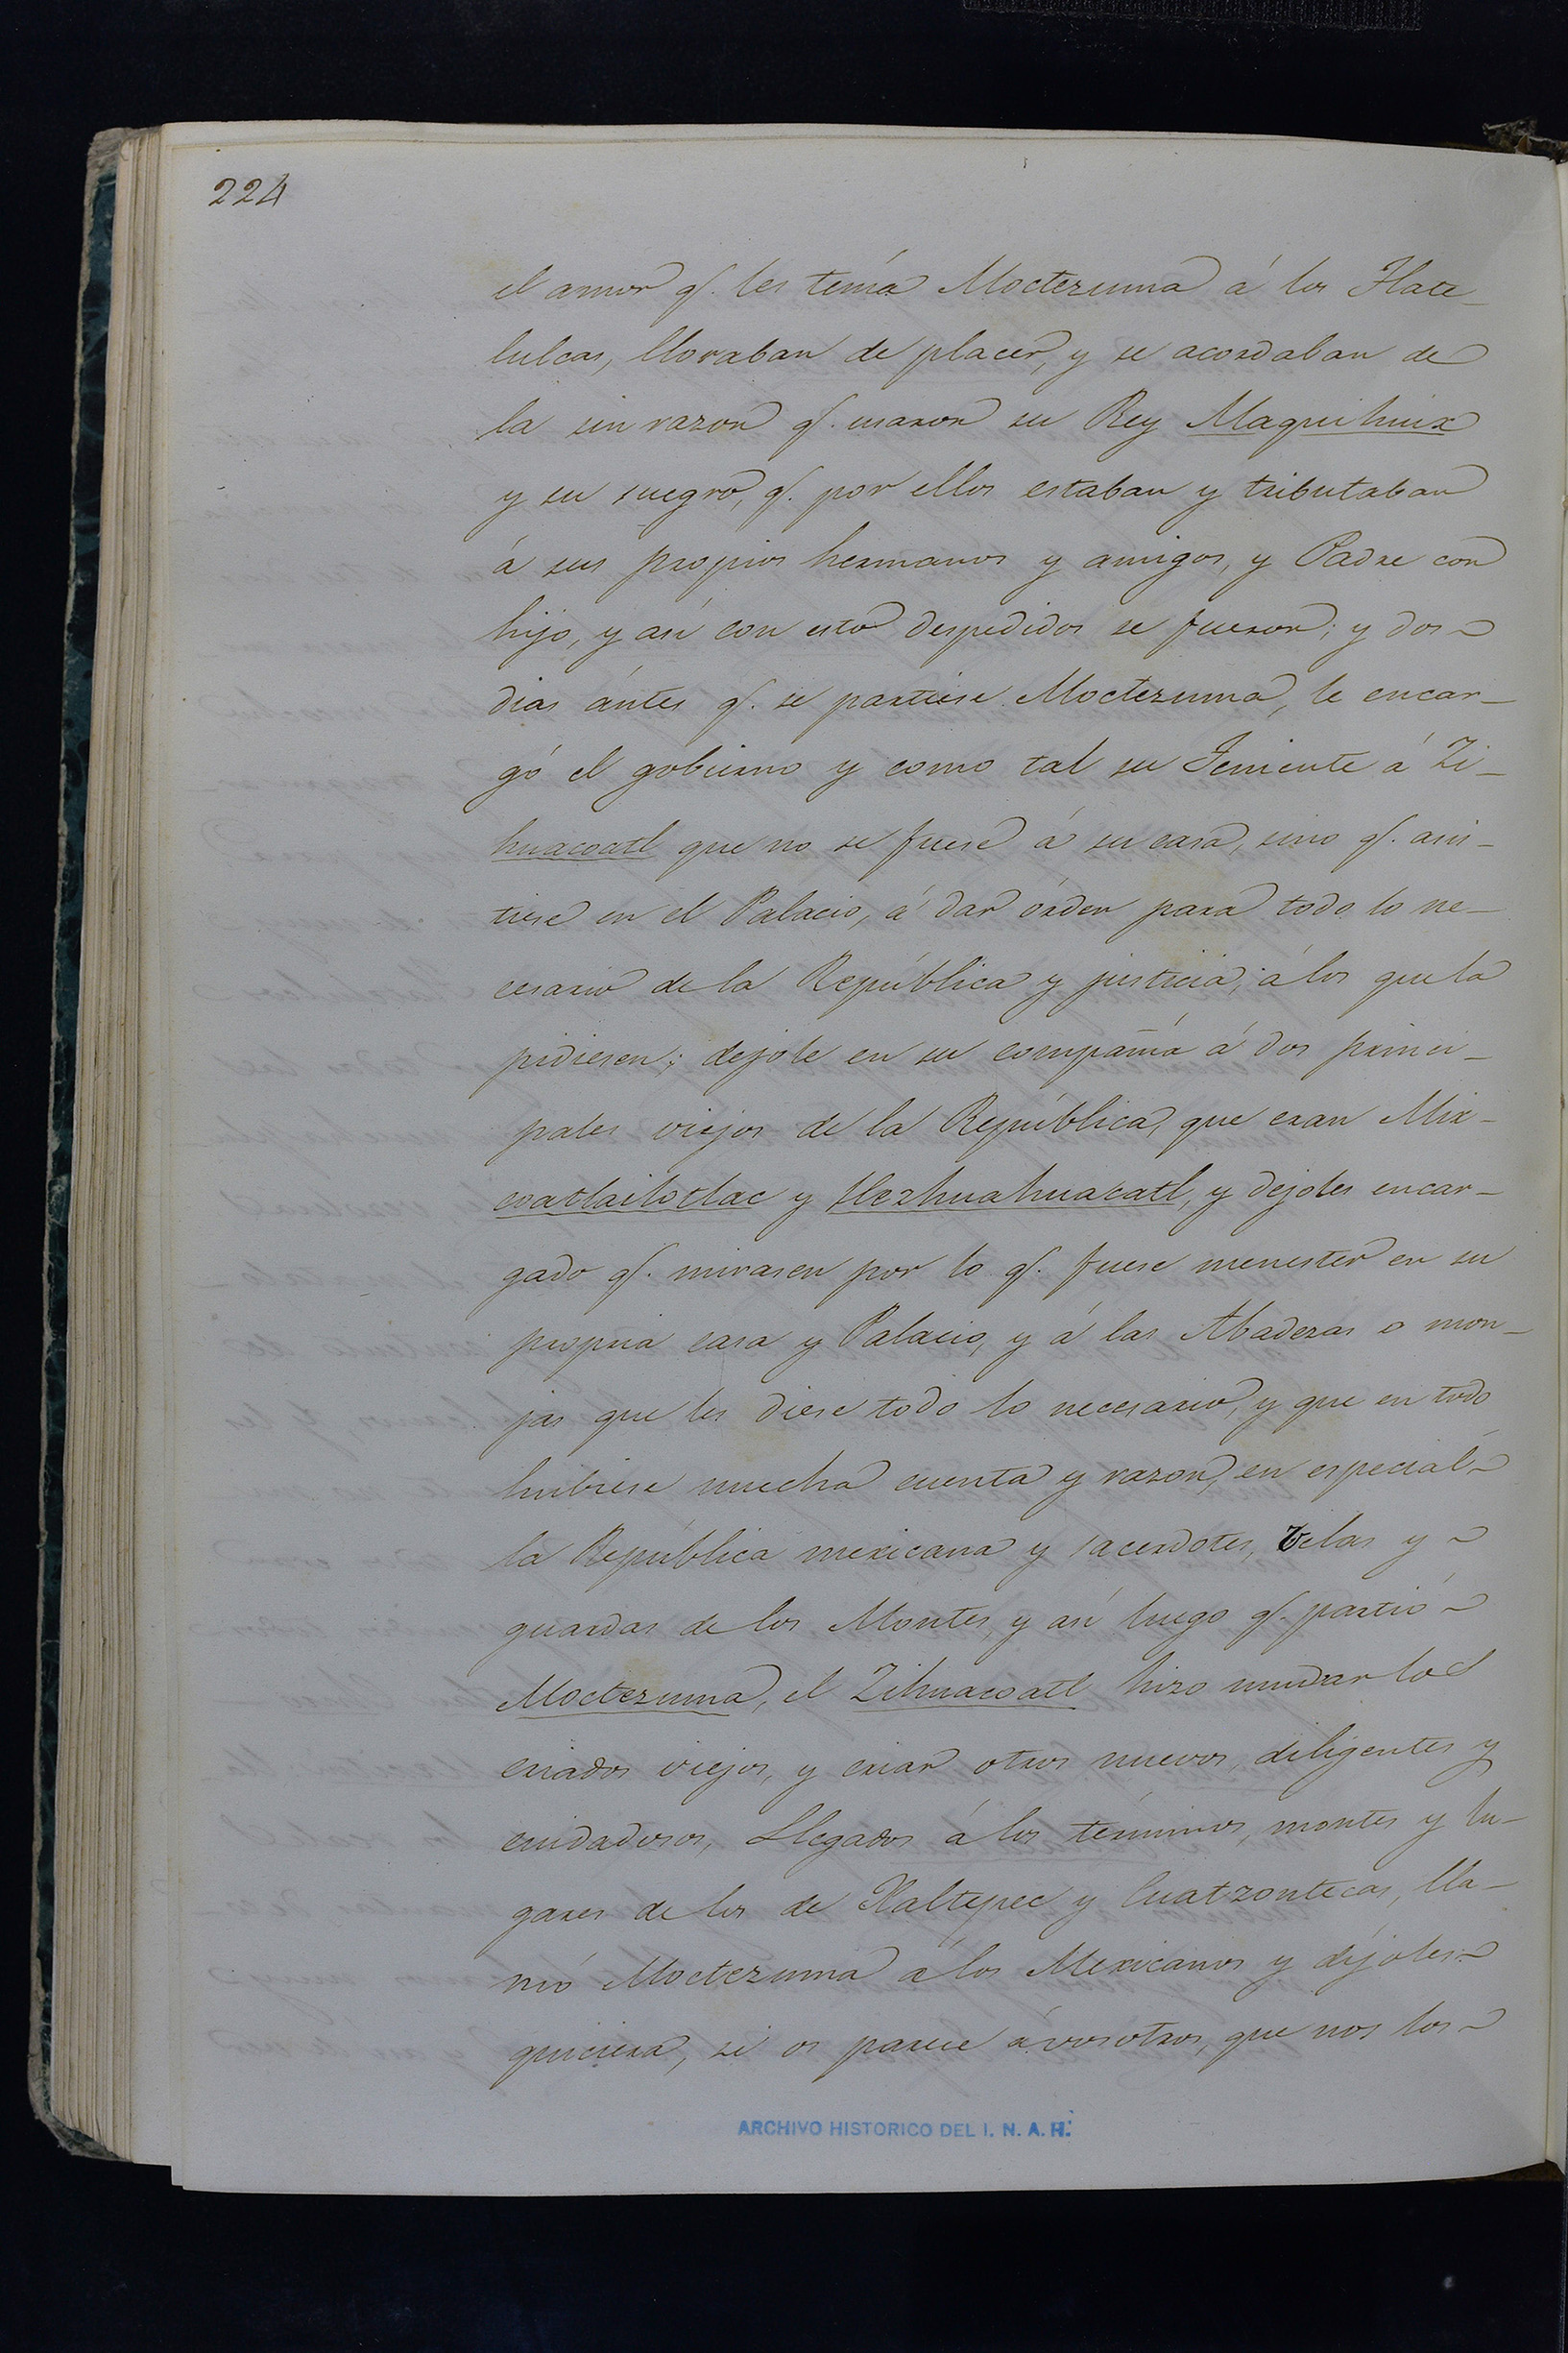 224
el amor q. les tenía Moctezuma á los Tlate-
lulcas, lloraban de placer, y se acordaban de
la sin razon q. usaron su Rey Maquihuix
y su suegro, q. por ellos estaban y tributaban
á sus propios hermanos y amigos, y Padre con
hijo, y así con esto despedidos se fueron; y dos
dias ántes q. se partiese Moctezuma, le encar-
gó el gobierno y como tal su Teniente á Zi-
huacoatl que no se fuese á su casa, sino q. asis-
tiese en el Palacio, á dar órden para todo lo ne-
cesario de la República y justicia, á los que la
pidiesen; dejole en su compañía á dos princi-
pales viejos de la República, que eran Mix-
coatlailotlac y tlezhuahuacatl, y dejoles encar-
gado q. mirasen por lo q. fuese menester en su
propia casa y Palacio, y á las Abadezas o mon-
jas que les diese todo lo necesario, y que en todo
hubiese mucha cuenta y razon, en especial
la República mexicana y sacerdotes, velas y
guardas de los Montes, y así luego q. partió
Moctezuma, el Zihuacoatl hizo mudar los
criados viejos, y criar otros nuevos, diligentes y
cuidadosos, Llegados á los términos, montes y lu-
gares de los de Xaltepec y Cuatzontecas, lla-
mó Moctezuma á los Mexicanos y díjoles:
quiciera, si os parece á vosotros, que nos los
ARCHIVO HISTORICO DEL I. N. A. H.